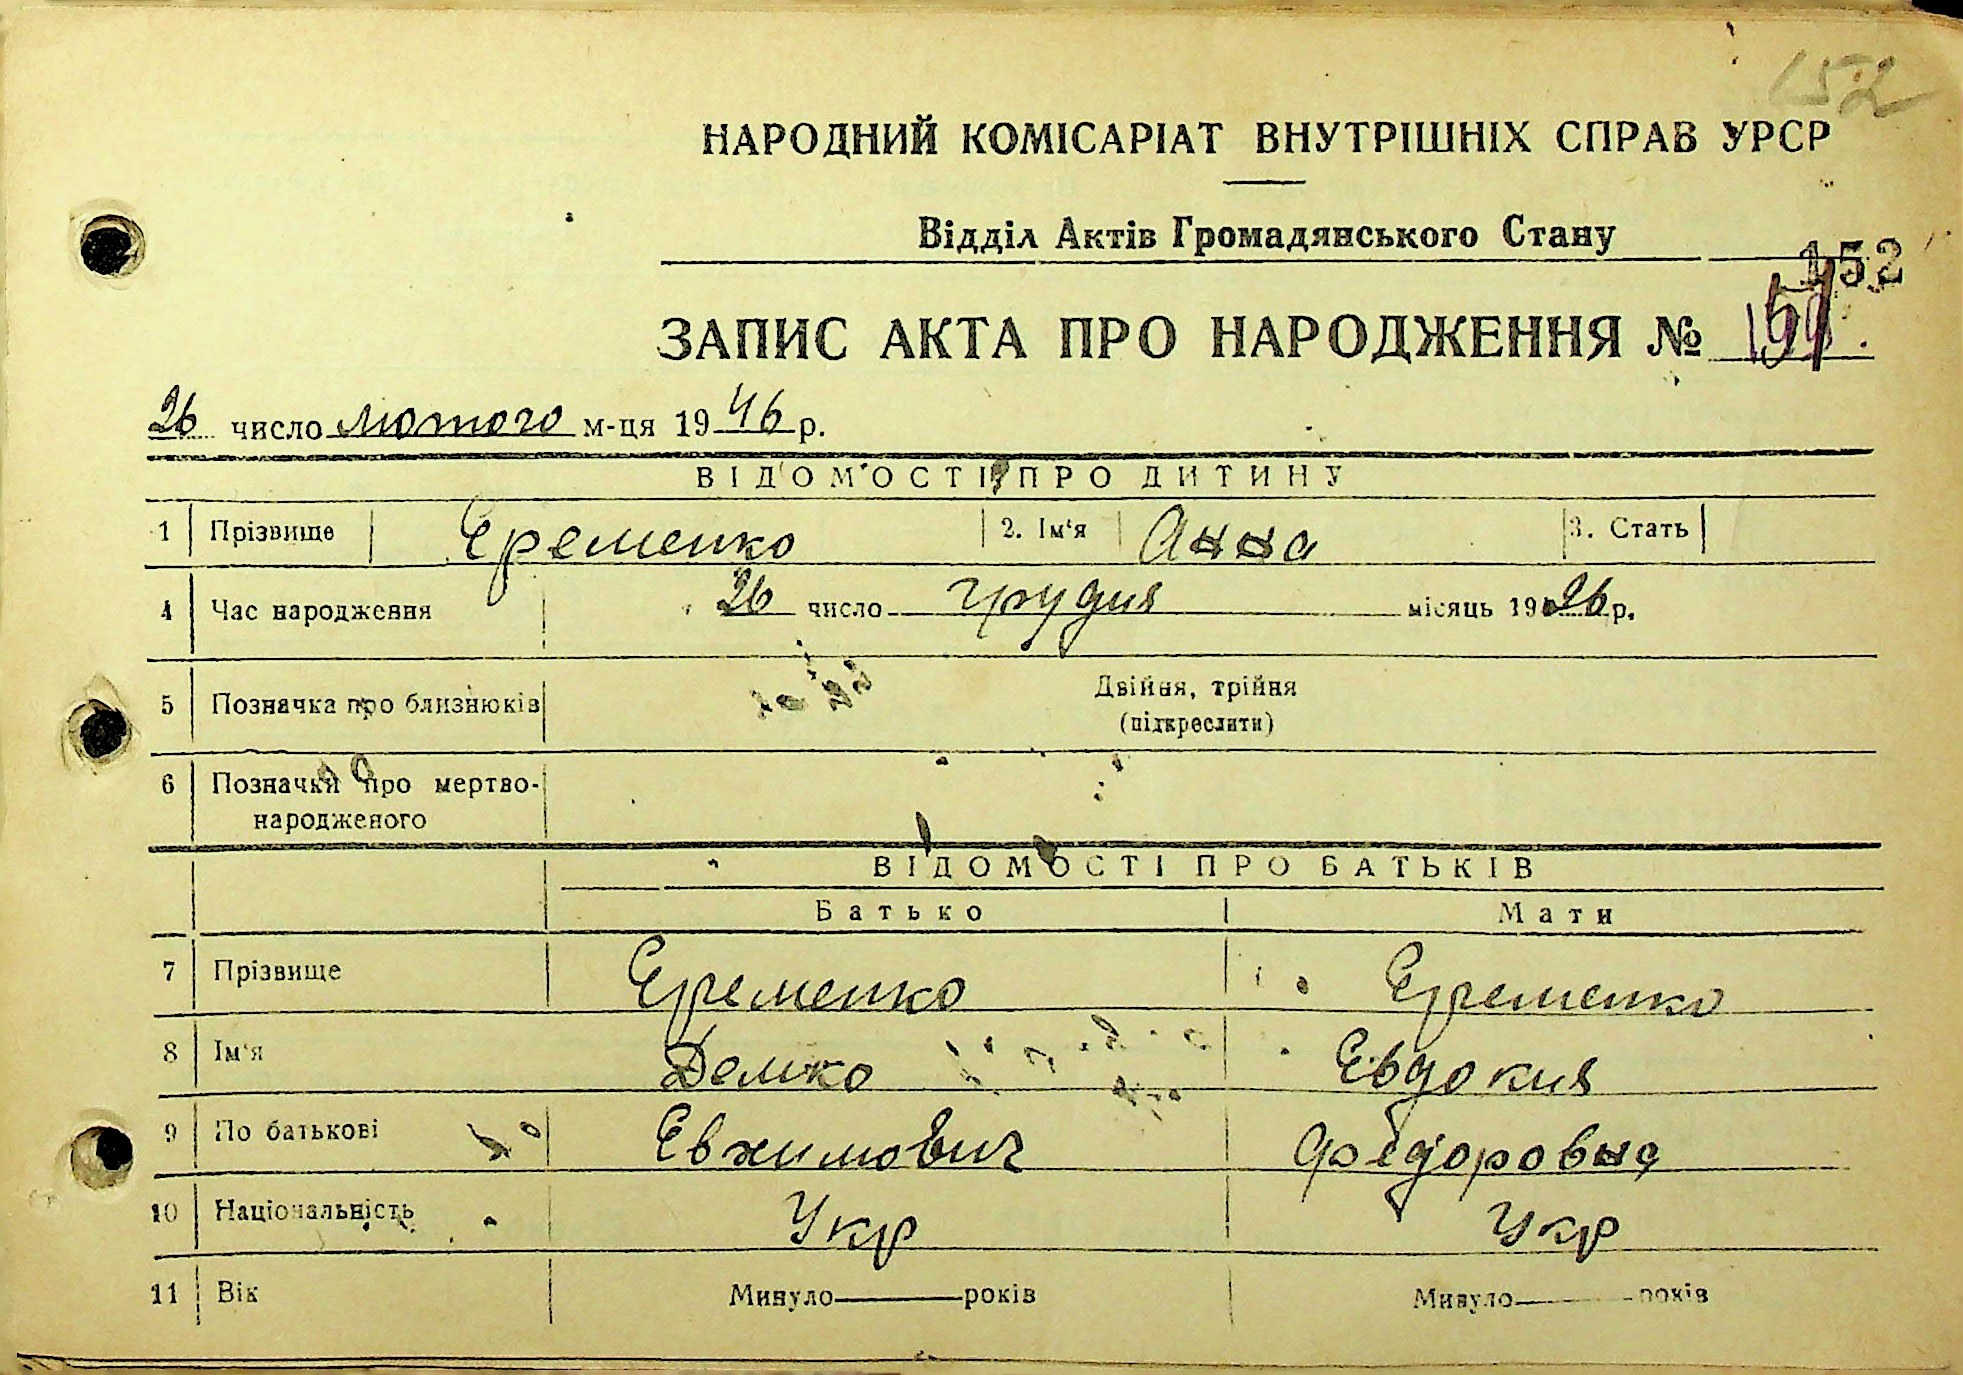 152
НАРОДНИЙ КОМІСАРІАТ ВНУТРІШНІХ СПРАВ УРСР
Відділ Актів Громадянського Стану
152
ЗАПИС АКТА ПРО НАРОДЖЕННЯ №
26 число лютого м-ця 1946 р.
ВІДОМОСТІ ПРО ДИТИНУ
1 Прізвище Еременко 2. Ім'я Анна 3. Стать
4 Час народження 26 число грудня місяць 1926 р.
5 Позначка про близнюків Двійня, трійня
(підкреслити)
6 Позначки про мертво-
народженого
ВІДОМОСТІ ПРО БАТЬКІВ
Батько Мати
7 Прізвище Еременко Еременко
8 Ім'я Демко Евдокия
9 По батькові Евхимович Федоровна
10 Національність Укр Укр
11 Вік Минуло років Минуло років